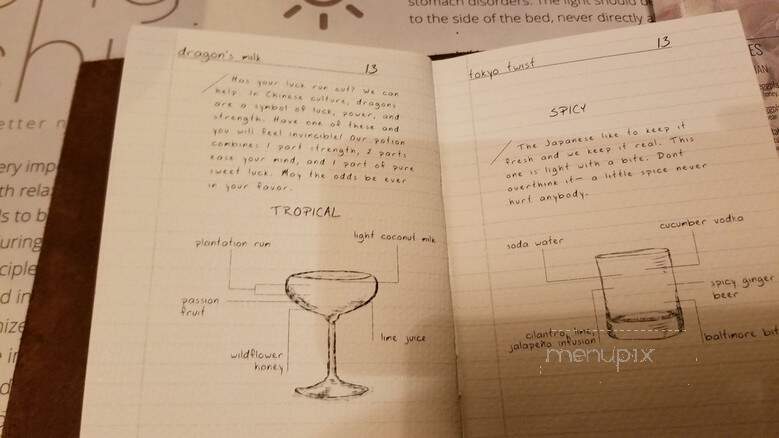 stomach disorders. The light should be
to the side of the bed, never directly a
dragon's milk
13
Has your luck run out? We can
help. In Chinese culture, dragons
are a symbol of luck, power, and
strength. Have one of these and
you will feel invincible! Our potion
combines 1 part strength, 2 parts
ease your mind, and 1 part of pure
sweet luck. May the odds be ever
in your favor.
TROPICAL
plantation rum
light coconut milk
passion
fruit
lime juice
wildflower
honey
tokyo twist
13
SPICY
The Japanese like to keep it
fresh and we keep it real. This
one is light with a bite. Dont
overthink it- a little spice never
hurt anybody.
soda water
cucumber vodka
spicy ginger
beer
cilantro, lime,
jalapeño infusion
baltimore bit
menupix
etter
ery imp
th relax
ls to b
uring
ciple
d in
nize